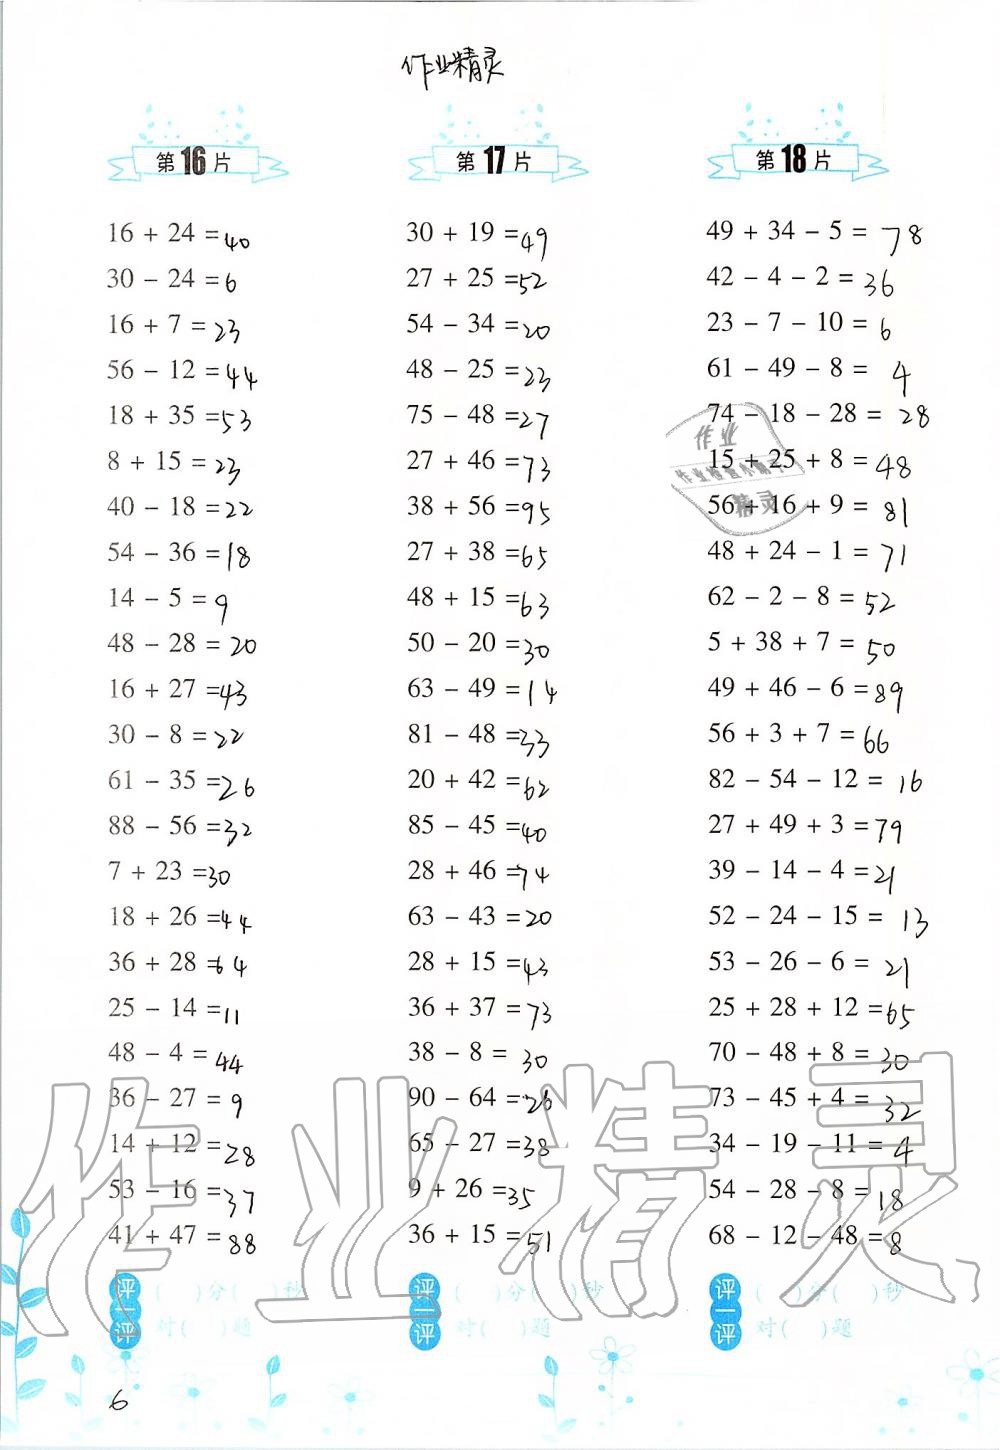 作业精灵
第16片
16 + 24 = 40
30 - 24 = 6
16 + 7 = 23
56 - 12 = 44
18 + 35 = 53
8 + 15 = 23
40 - 18 = 22
54 - 36 = 18
14 - 5 = 9
48 - 28 = 20
16 + 27 = 43
30 - 8 = 22
61 - 35 = 26
88 - 56 = 32
7 + 23 = 30
18 + 26 = 44
36 + 28 = 64
25 - 14 = 11
48 - 4 = 44
36 - 27 = 9
14 + 12 = 28
53 - 16 = 37
41 + 47 = 88
评一评
( )分( )秒
对( )题
第17片
30 + 19 = 49
27 + 25 = 52
54 - 34 = 20
48 - 25 = 23
75 - 48 = 27
27 + 46 = 73
38 + 56 = 95
27 + 38 = 65
48 + 15 = 63
50 - 20 = 30
63 - 49 = 14
81 - 48 = 33
20 + 42 = 62
85 - 45 = 40
28 + 46 = 74
63 - 43 = 20
28 + 15 = 43
36 + 37 = 73
38 - 8 = 30
90 - 64 = 26
65 - 27 = 38
9 + 26 = 35
36 + 15 = 51
评一评
( )分( )秒
对( )题
第18片
49 + 34 - 5 = 78
42 - 4 - 2 = 36
23 - 7 - 10 = 6
61 - 49 - 8 = 4
74 - 18 - 28 = 28
15 + 25 + 8 = 48
56 + 16 + 9 = 81
48 + 24 - 1 = 71
62 - 2 - 8 = 52
5 + 38 + 7 = 50
49 + 46 - 6 = 89
56 + 3 + 7 = 66
82 - 54 - 12 = 16
27 + 49 + 3 = 79
39 - 14 - 4 = 21
52 - 24 - 15 = 13
53 - 26 - 6 = 21
25 + 28 + 12 = 65
70 - 48 + 8 = 30
73 - 45 + 4 = 32
34 - 19 - 11 = 4
54 - 28 - 8 = 18
68 - 12 - 48 = 8
评一评
( )分( )秒
对( )题
作业
精灵
作业精灵
6